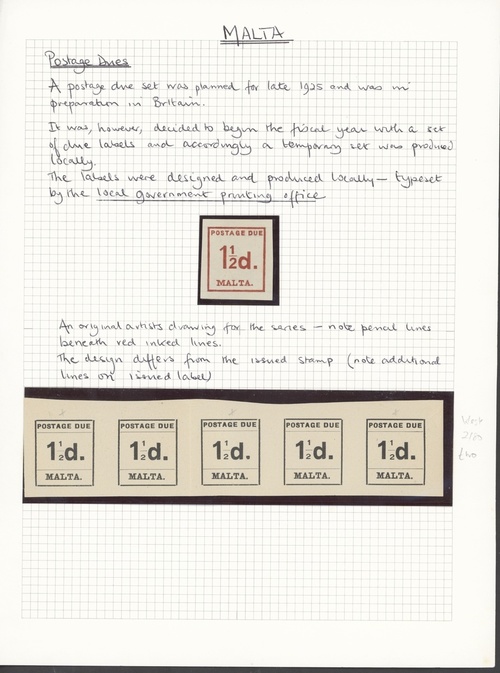 MALTA
Postage Dues
A postage due set was planned for late 1925 and was in
preparation in Britain.
It was, however, decided to begin the fiscal year with a set
of due labels and accordingly a temporary set was produced
locally.
The labels were designed and produced locally — typeset
by the local government printing office
POSTAGE DUE
1½d.
MALTA.
An original artists drawing for the series — note pencil lines
beneath red inked lines.
The design differs from the issued stamp (note additional
lines on issued label)
POSTAGE DUE POSTAGE DUE POSTAGE DUE POSTAGE DUE POSTAGE DUE
1½d. 1½d. 1½d. 1½d. 1½d.
MALTA. MALTA. MALTA. MALTA. MALTA.